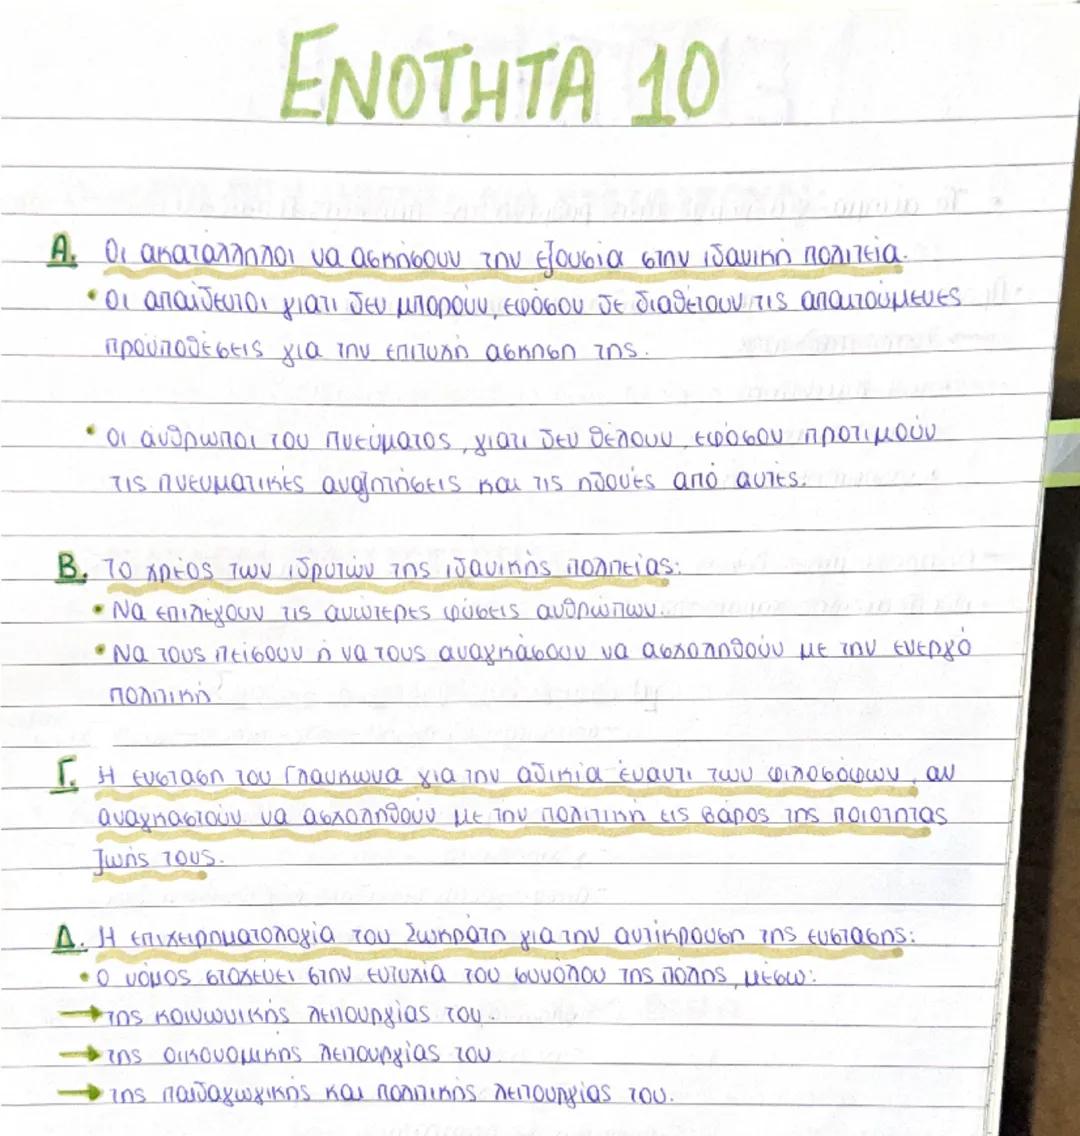 ΕΝΟΤΗΤΑ 10
Α. Οι ακατάλληλοι να ασκήσουν την εξουσία στην ιδανική πολιτεία.
• Οι απαίδευτοι γιατί δεν μπορούν, εφόσον δε διαθέτουν τις απαιτούμενες
προϋποθέσεις για την επιτυχή άσκηση της.
• Οι άνθρωποι του πνεύματος, γιατί δεν θέλουν, εφόσον προτιμούν
τις πνευματικές αναζητήσεις και τις ηδονές από αυτές.
Β. Το χρέος των ιδρυτών της ιδανικής πολιτείας:
• Να επιλέγουν τις ανώτερες φύσεις ανθρώπων.
• Να τους πείσουν ή να τους αναγκάσουν να ασχοληθούν με την ενεργό
πολιτική
Γ. Η ένσταση του Γλαύκωνα για την αδικία έναντι των φιλοσόφων, αν
αναγκαστούν να ασχοληθούν με την πολιτική εις βάρος της ποιότητας
ζωής τους.
Δ. Η επιχειρηματολογία του Σωκράτη για την αντίκρουση της ένστασης:
• Ο νόμος στοχεύει στην ευτυχία του συνόλου της πόλης, μέσω:
→ της κοινωνικής λειτουργίας του.
→ της οικονομικής λειτουργίας του
→ της παιδαγωγικής και πολιτικής λειτουργίας του.